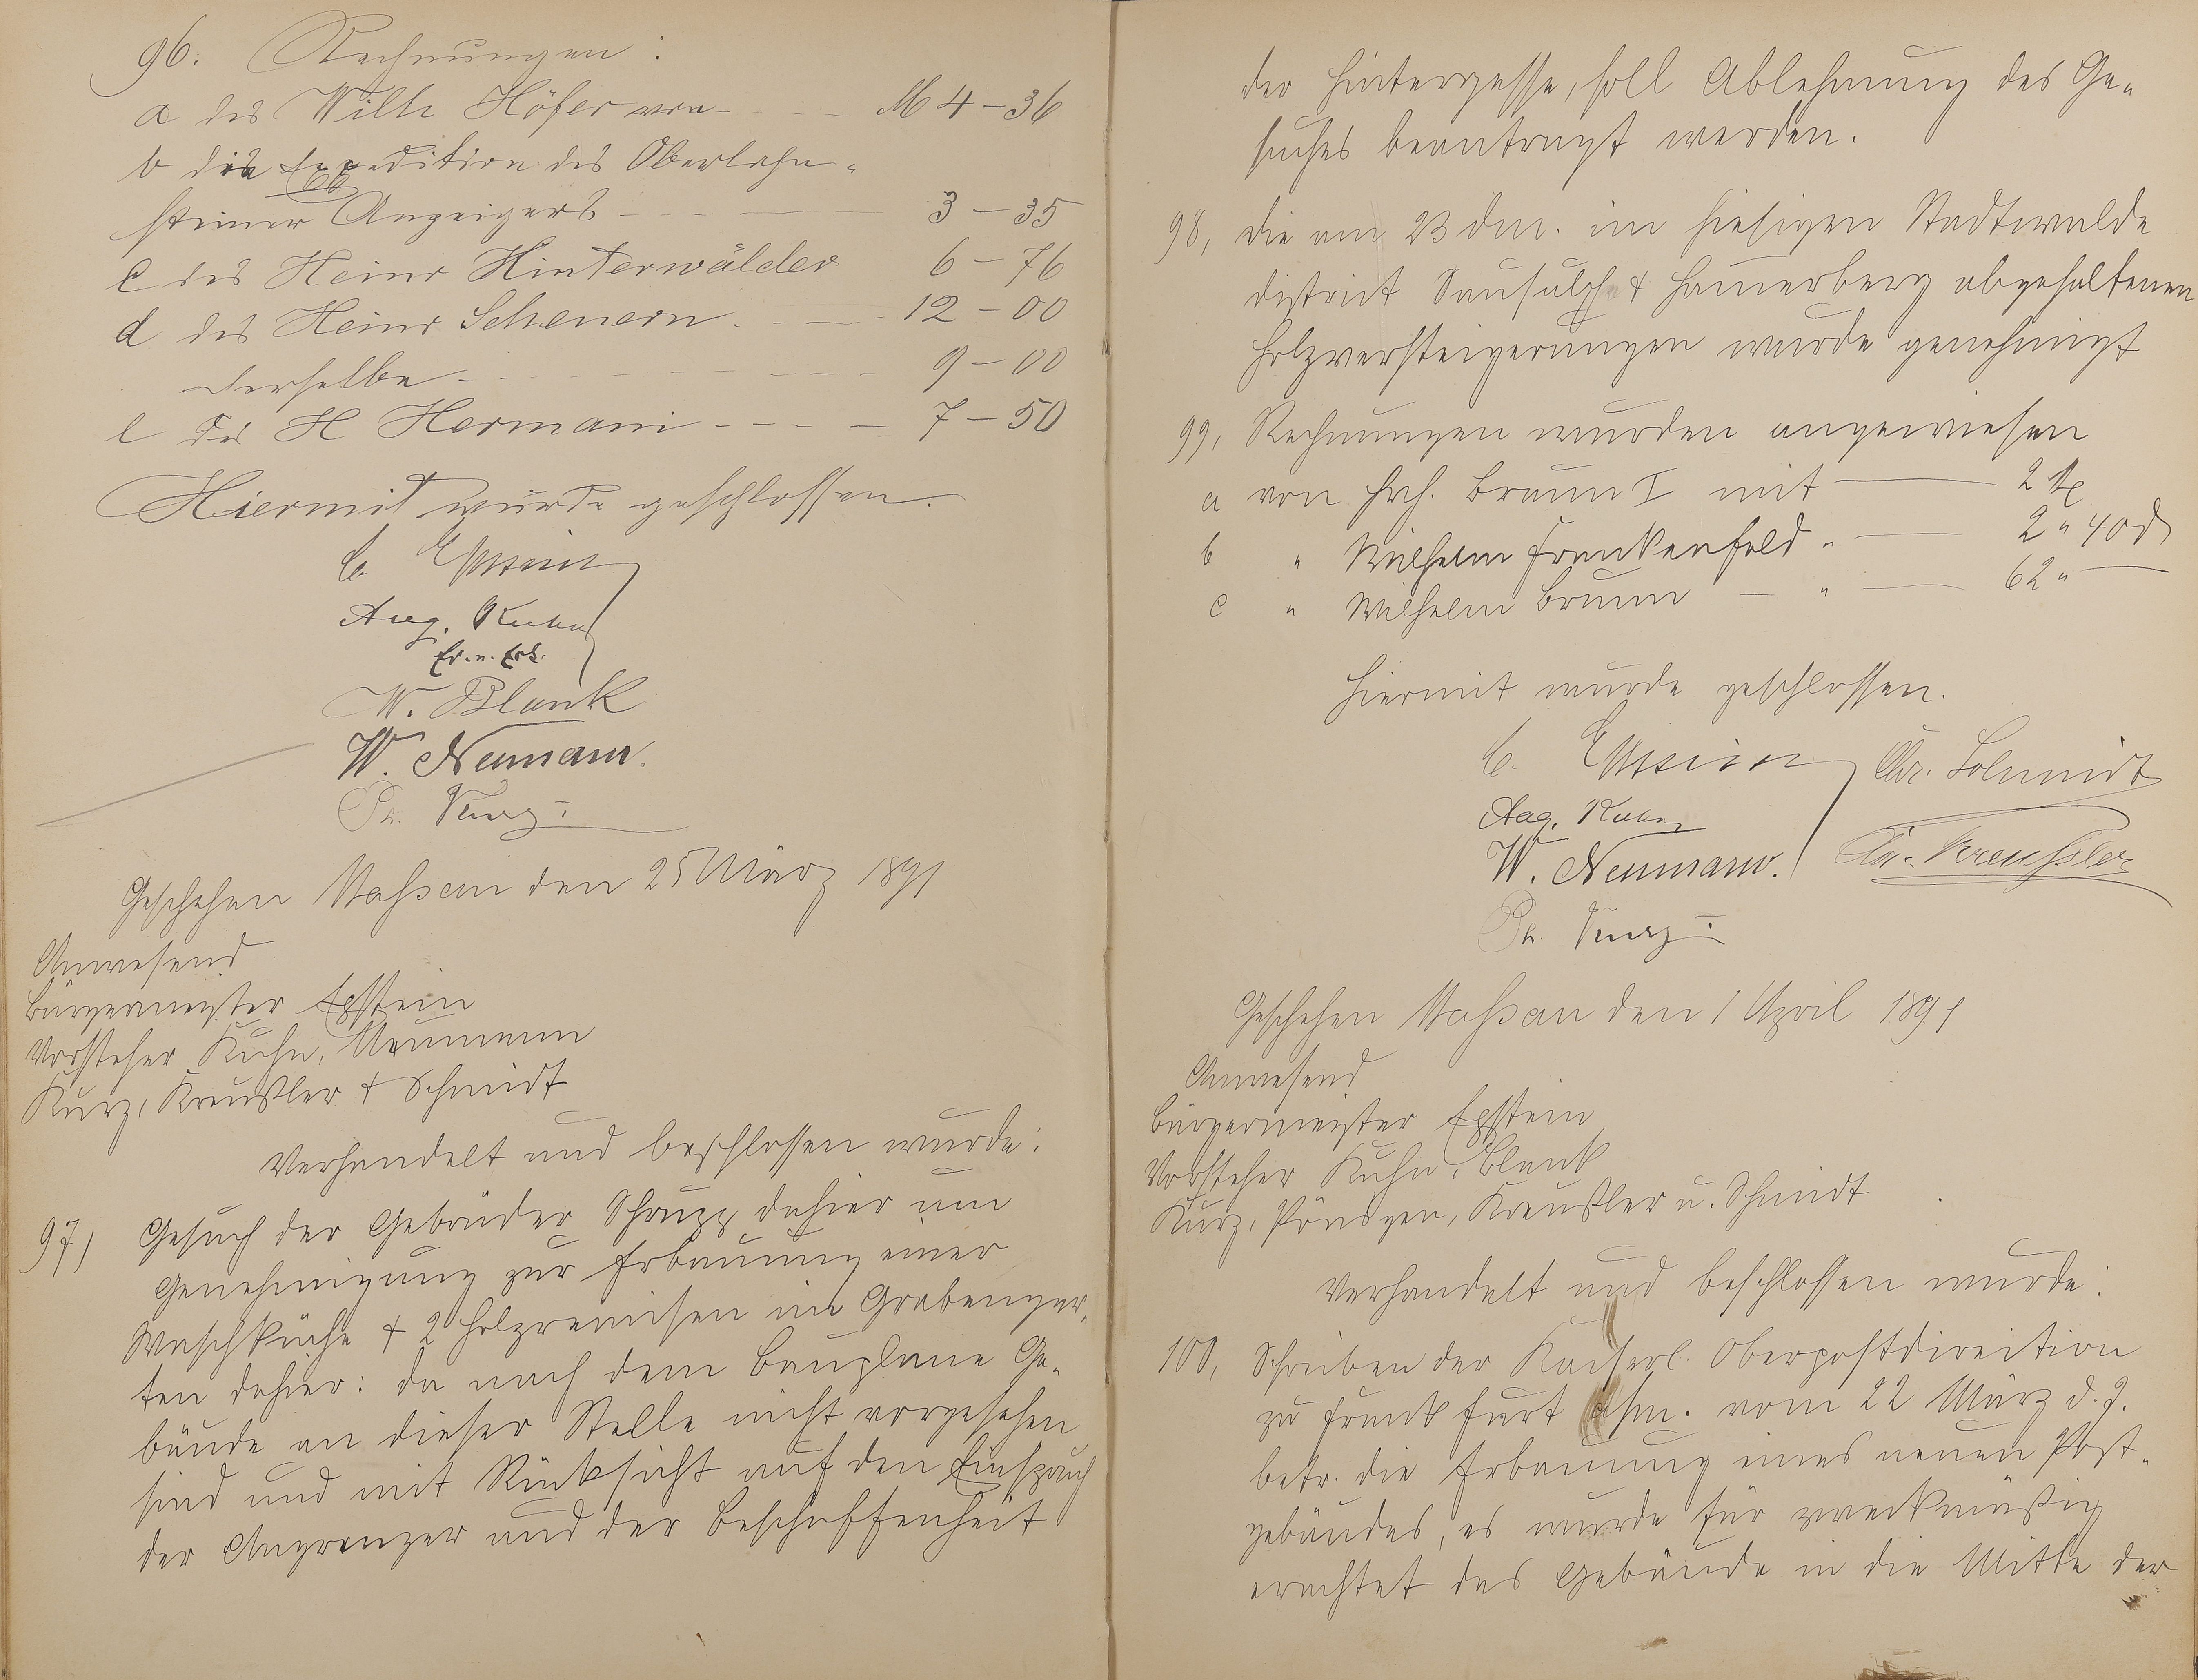 96. Rechnungen:
a des Wilh Höfer von - - - M 4 - 36
b die Expedition des Oberlahn-
steiner Anzeigers - - - 3 - 35
c des Heinr Hinterwälder 6 - 76
d des Heinr Scheuern - - - 12 - 00
derselbe - - - 9 - 00
e des H Hermani - - - 7 - 50
Hiermit wurde geschlossen.
C. Epstein
Aug. Kuhn
W. Blank
W. Neumann.
Ph. Kurz I
Geschehen Nassau den 25 März 1891
Anwesend
Bürgermeister Epstein
Vorsteher Kuhn, Neumann
Kurz, Kreußler & Schmidt
Verhandelt und beschlossen wurde:
97, Gesuch der Gebrüder Schrupp dahier um
Genehmigung zur Erbauung einer
Waschküche & 2 Holzremisen im Grabengar-
ten dahier: da nach dem Bauplane Ge-
bäude an dieser Stelle nicht vorgesehen
sind und mit Rücksicht auf den Einspruch
der Angrenzer und der Beschaffenheit
der Hintergasse, soll Ablehnung des Ge-
suches beantragt werden.
98, die am 23 dm. im hiesigen Stadtwalde
district & Hammerberg abgehaltenen
Holzversteigerungen wurde genehmigt
99, Rechnungen wurden angewiesen
a von Frh. Braun I mit 2 M
b " Wilhelm Frankenfeld " 2 " 40 d
c " Wilhelm Braun - " 62 " -
Hiermit wurde geschlossen.
C. Epstein Chr. Schmidt
Aug. Kuhn
W. Neumann. Chr. Kreußler
Ph. Kurz I
Geschehen Nassau den 1 April 1891
Anwesend
Bürgermeister Epstein
Vorsteher Kuhn, Blank
Kurz, Pönsgen, Kreußler u. Schmidt
Verhandelt und beschlossen wurde:
100, Schreiben der Kaiserl. Oberpostdirection
zu Frankfurt a/m. vom 22 März d. J.
betr. die Erbauung eines neuen Post-
gebäudes, es wurde für zweckmäßig
erachtet das Gebäude in die Mitte der